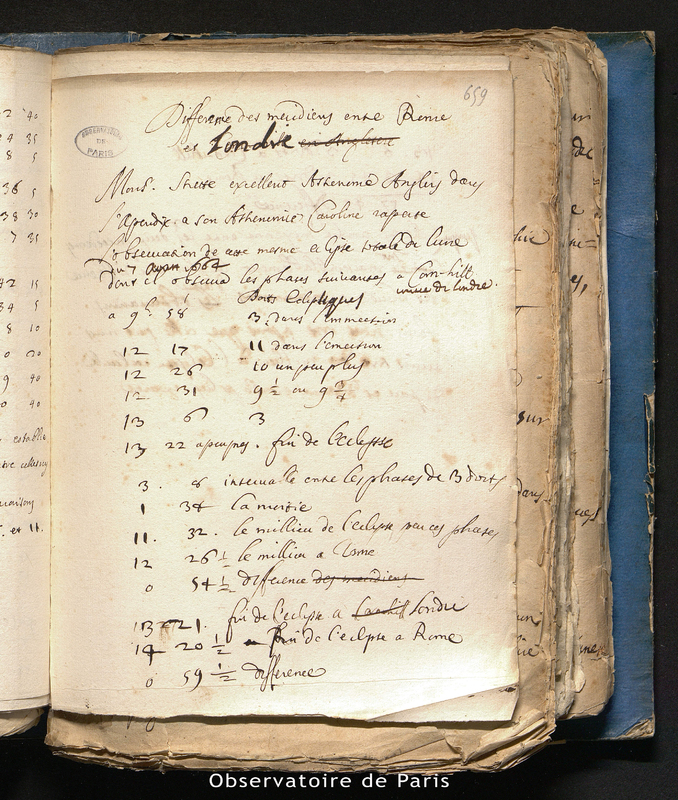 659
OBSERVATOIRE
DE
PARIS
Difference des meridiens entre Rome
et Londre en Angleterre
Mons. Strete excellent Astronome Anglois dans
l'Apendix a son Astronomie Caroline raporte
l'observation de cette mesme eclipse totale de lune
dont il observa les phases suivantes a Corn-hill
rue de Londre.
Doits Ecliptiques
a 9h 58' 3. dans l'immersion
12 17 11 dans l'emersion
12 26 10 un peu plus
12 31 9 1/2 ou 9 3/4
13 6 3
13 22 a peu pres. fin de l'eclypse
3. 8 intervalle entre les phases de 3 doits
1 34 la moitie
11. 32. le millieu de l'eclipse par ces phases
12 26 1/2 le millieu a Rome
0 54 1/2 difference des meridiens
13 21. fin de l'eclipse a Londre
14 20 1/2 fin de l'eclipse a Rome
0 59 1/2 difference
Observatoire de Paris